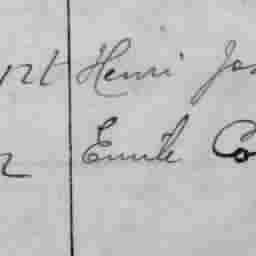 Henri Jos
Emile Co